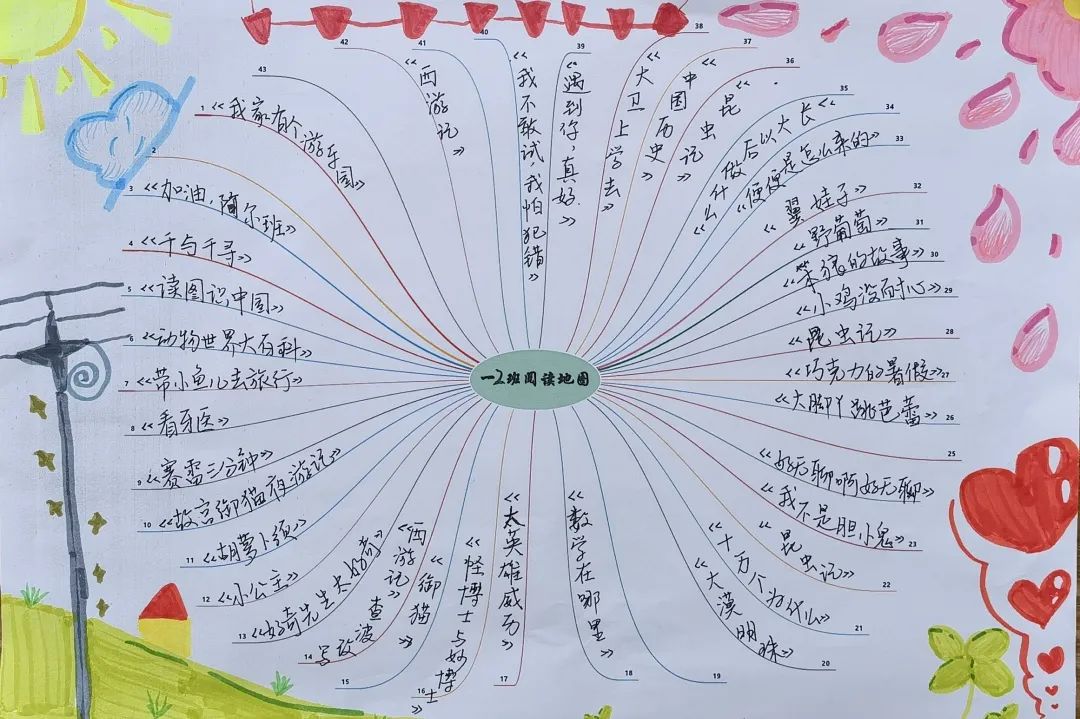 一2班阅读地图
1
《我家有个游乐园》
2
3
《加油,阿尔班》
4
《千与千寻》
5
《读图识中国》
6
《动物世界大百科》
7
《带小鱼儿去旅行》
8
《看牙医》
9
《赛雷三分钟》
10
《故宫御猫夜游记》
11
《胡萝卜须》
12
《小公主》
13
《好奇先生太好奇》
14
《西游记》
15
《御猫
16
《怪博士与妙博士》
17
《大英雄威历》
18
《数学在哪里》
19
20
《大漠明珠》
21
《十万个为什么》
22
《昆虫记》
23
《我不是胆小鬼》
《好无聊啊好无聊》
25
26
《大脚丫跳芭蕾》
27
《巧克力的暑假》
28
《昆虫记》
29
《小鸡没耐心》
30
《笨狼的故事》
31
《野葡萄》
32
《翼娃子》
33
《便便是怎么来的》
34
《长大以后做什么》
35
36
《昆虫记》
37
《中国历史》
38
《大卫上学去》
39
《遇到你,真好》
40
《我不敢试,我怕犯错》
41
《西游记》
42
43